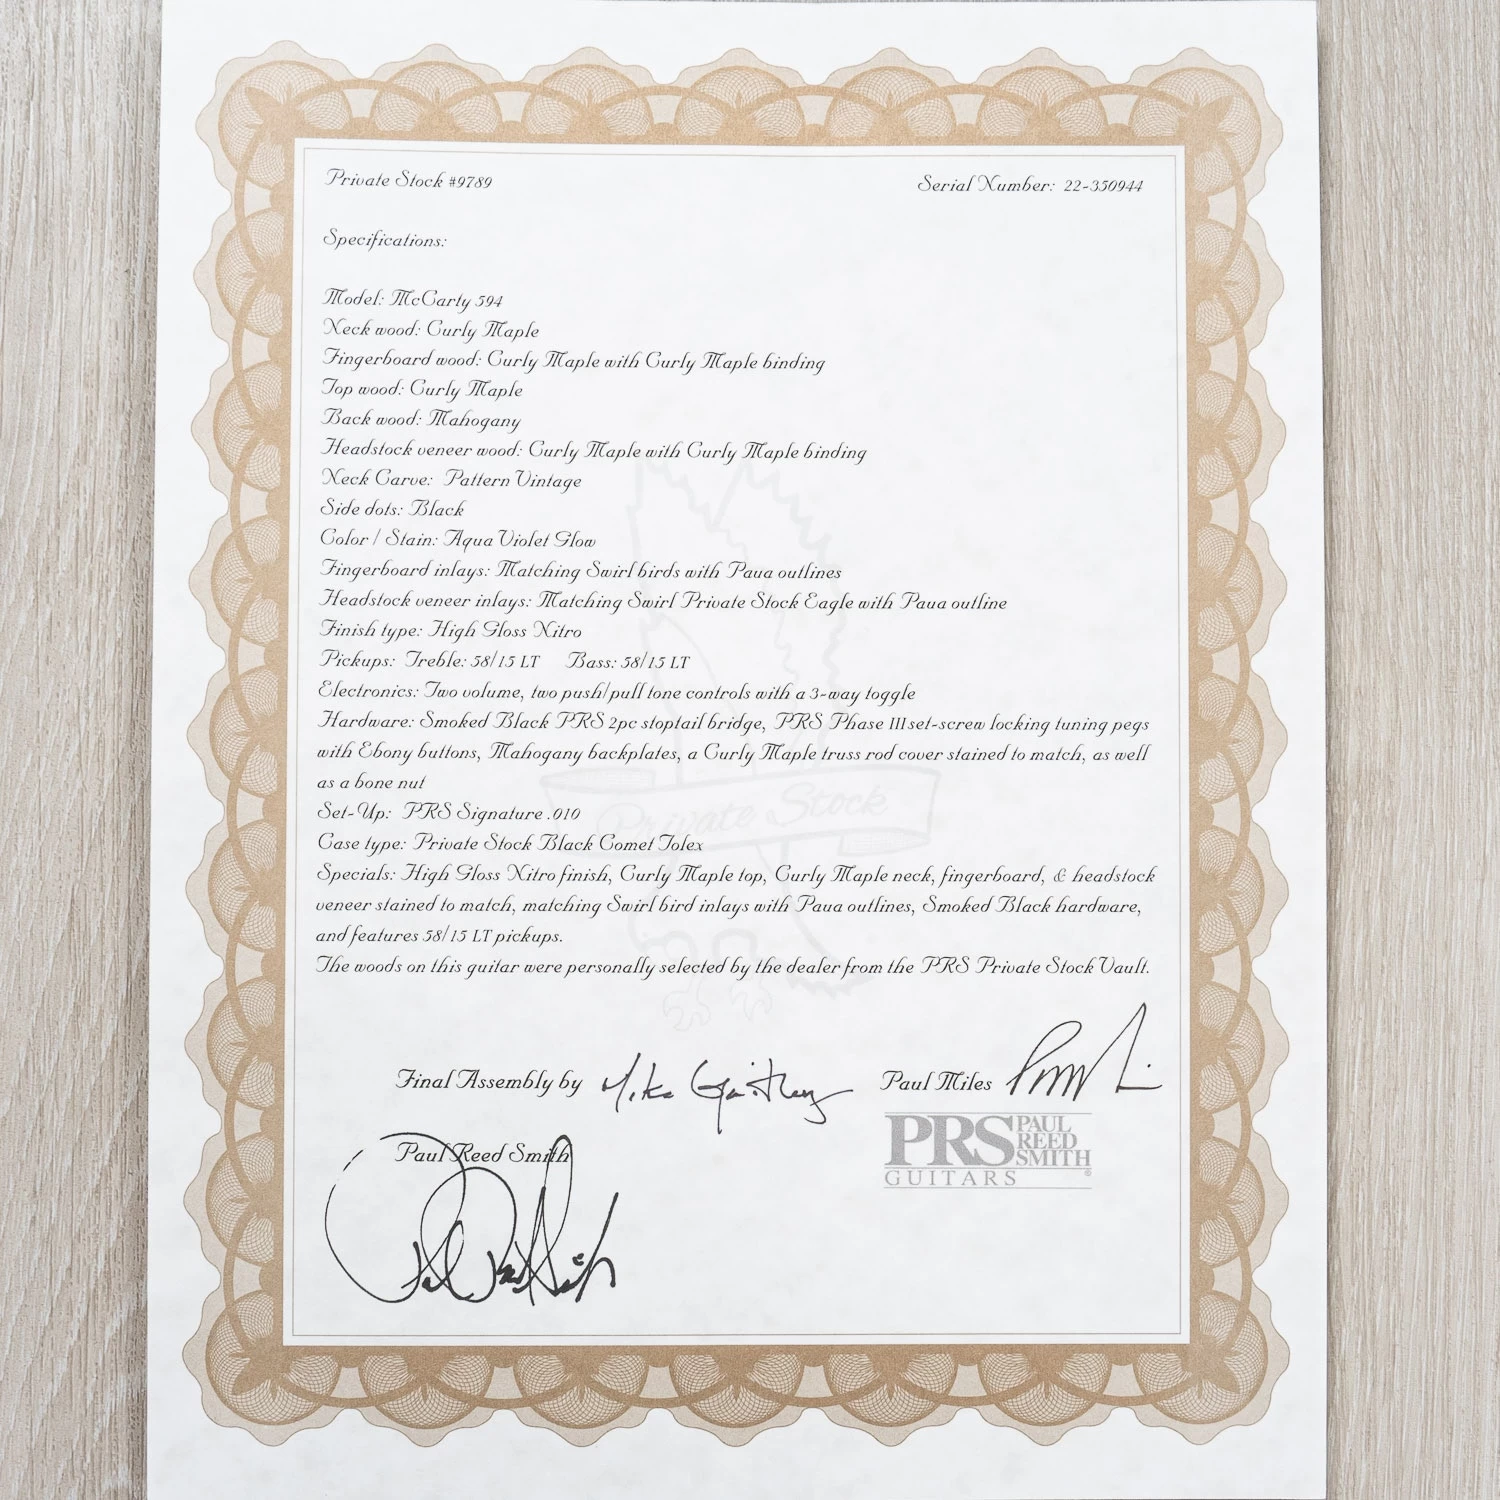 Private Stock #9789 Serial Number: 22-350944
Specifications:
Model: McCarty 594
Neck wood: Curly Maple
Fingerboard wood: Curly Maple with Curly Maple binding
Top wood: Curly Maple
Back wood: Mahogany
Headstock veneer wood: Curly Maple with Curly Maple binding
Neck Carve: Pattern Vintage
Side dots: Black
Color / Stain: Aqua Violet Glow
Fingerboard inlays: Matching Swirl birds with Paua outlines
Headstock veneer inlays: Matching Swirl Private Stock Eagle with Paua outline
Finish type: High Gloss Nitro
Pickups: Treble: 58/15 LT Bass: 58/15 LT
Electronics: Two volume, two push/pull tone controls with a 3-way toggle
Hardware: Smoked Black PRS 2pc stoptail bridge, PRS Phase III set-screw locking tuning pegs
with Ebony buttons, Mahogany backplates, a Curly Maple truss rod cover stained to match, as well
as a bone nut
Set-Up: PRS Signature .010
Private Stock
Case type: Private Stock Black Comet Tolex
Specials: High Gloss Nitro finish, Curly Maple top, Curly Maple neck, fingerboard, & headstock
veneer stained to match, matching Swirl bird inlays with Paua outlines, Smoked Black hardware,
and features 58/15 LT pickups.
The woods on this guitar were personally selected by the dealer from the PRS Private Stock Vault.
Final Assembly by Mike Paul Miles
Paul Reed Smith
PRS PAUL
REED
SMITH
GUITARS